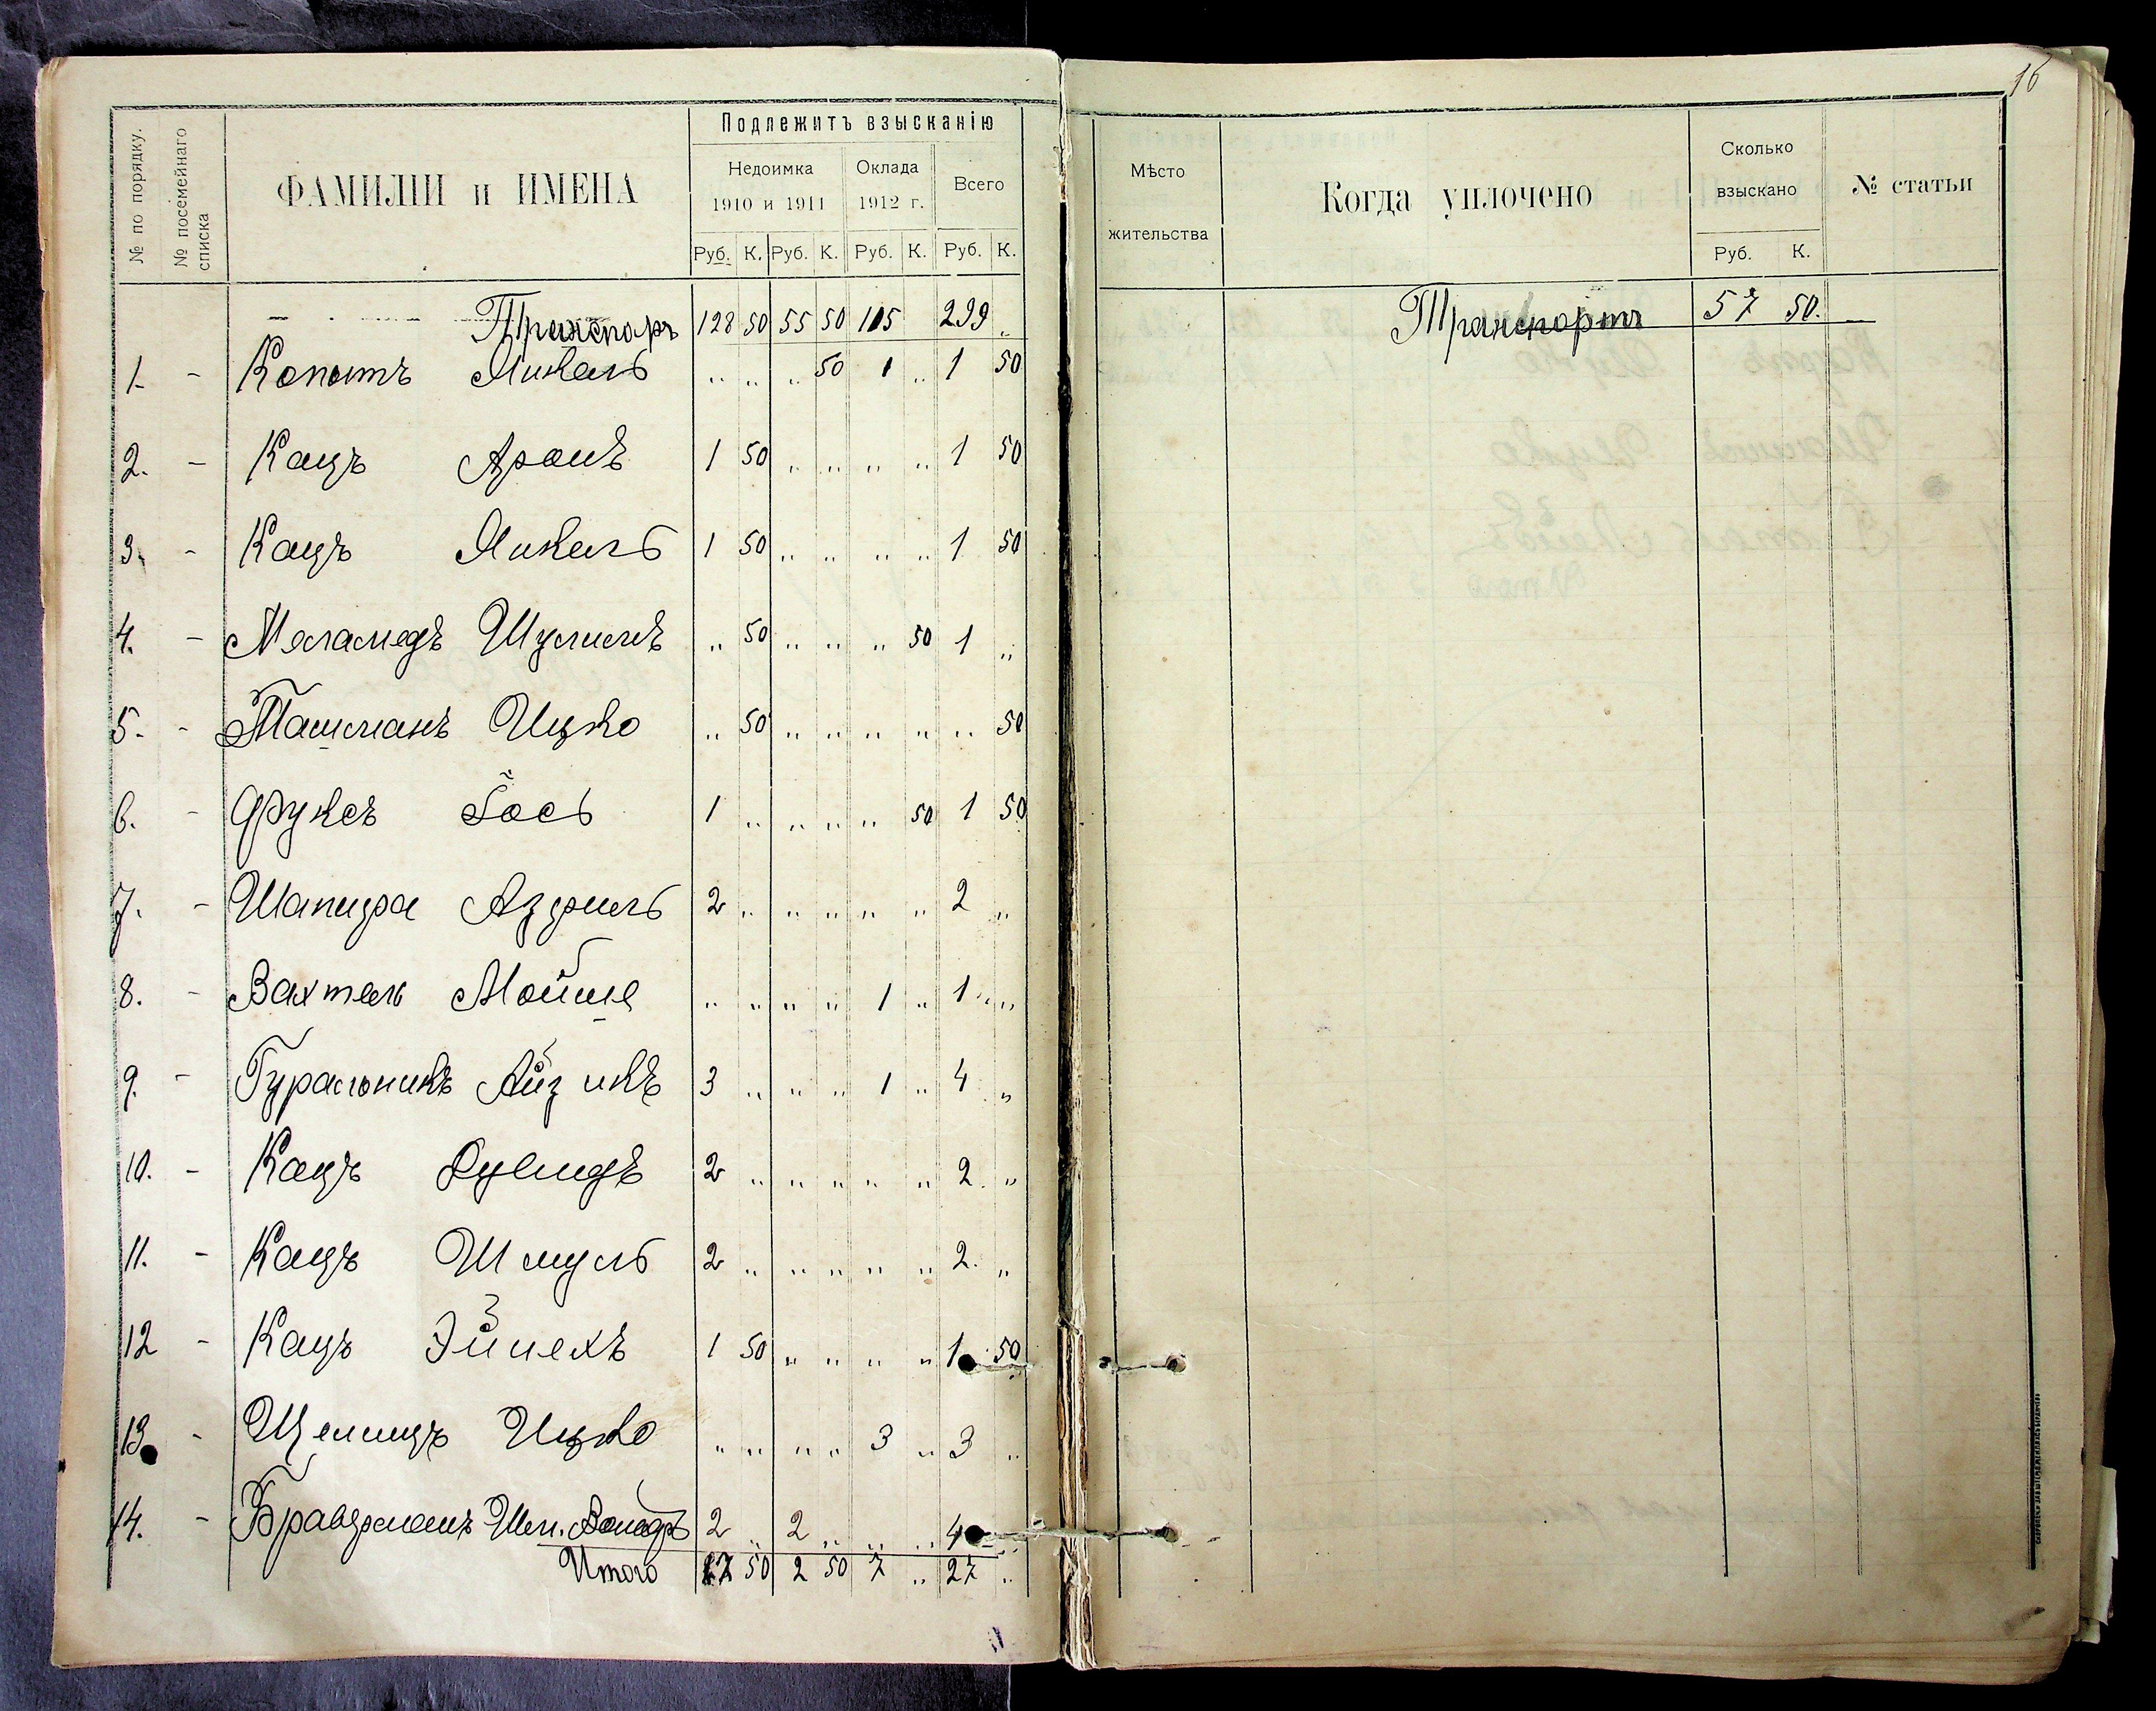 16
№ по порядку.
№ посемейнаго списка
ФАМИЛІИ и ИМЕНА
Подлежитъ взысканію
Недоимка 1910 и 1911
Оклада 1912 г.
Всего
Руб. К. Руб. К. Руб. К. Руб. К.
Транспортъ 128 50 55 50 115 299 „
1. - Копытъ Янкель „ „ „ 50 1 „ 1 50
2. - Кацъ Аронъ 1 50 „ „ „ „ 1 50
3. - Кацъ Янкель 1 50 „ „ „ „ 1 50
4. - Меламедъ Шулимъ „ 50 „ „ „ 50 1 „
5. - Ташманъ Ицко „ 50 „ „ „ „ „ 50
6. - Фуксъ Іось 1 „ „ „ „ 50 1 50
7. - Шапира Азриль 2 „ „ „ „ „ 2 „
8. - Вахтель Мойше „ „ „ „ 1 „ 1 „
9. - Гуральникъ Айзикъ 3 „ „ „ 1 „ 4 „
10. - Кацъ Дувидъ 2 „ „ „ „ „ 2. „
11. - Кацъ Шмуль 2 „ „ „ „ „ 2. „
12 - Кацъ Эйнехъ 1 50 „ „ „ „ 1 50
13. - Ицко „ „ „ „ 3 „ 3 „
14. - Браверманъ Шм. 2 „ 2 „ „ „ 4 „
Итого 17 50 2 50 7 „ 27 „
Мѣсто жительства
Когда уплочено
Сколько взыскано
№ статьи
Руб. К.
Транспортъ 57 50.